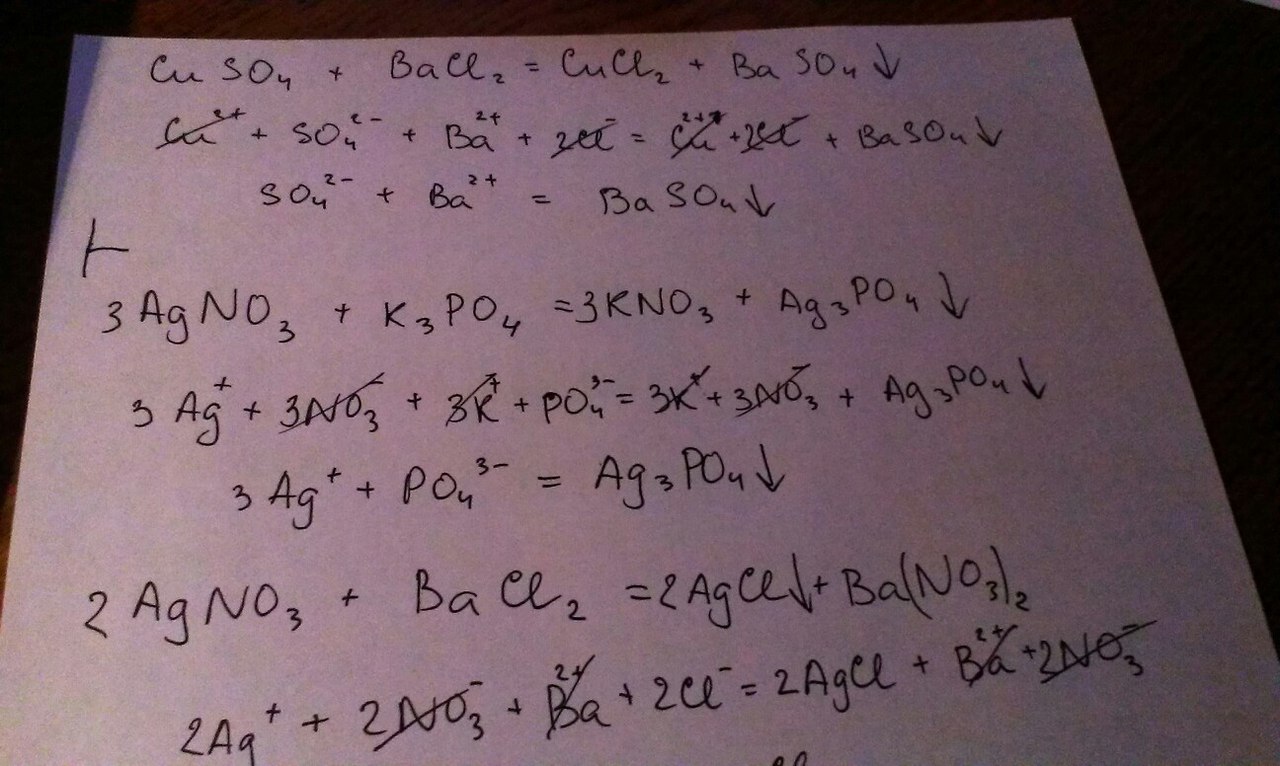 CuSO₄ + BaCl₂ = CuCl₂ + BaSO₄↓
Cu²⁺ + SO₄²⁻ + Ba²⁺ + 2Cl⁻ = Cu²⁺ + 2Cl⁻ + BaSO₄↓
SO₄²⁻ + Ba²⁺ = BaSO₄↓
3AgNO₃ + K₃PO₄ = 3KNO₃ + Ag₃PO₄↓
3Ag⁺ + 3NO₃⁻ + 3K⁺ + PO₄³⁻ = 3K⁺ + 3NO₃⁻ + Ag₃PO₄↓
3Ag⁺ + PO₄³⁻ = Ag₃PO₄↓
2AgNO₃ + BaCl₂ = 2AgCl↓ + Ba(NO₃)₂
2Ag⁺ + 2NO₃⁻ + Ba²⁺ + 2Cl⁻ = 2AgCl + Ba²⁺ + 2NO₃⁻